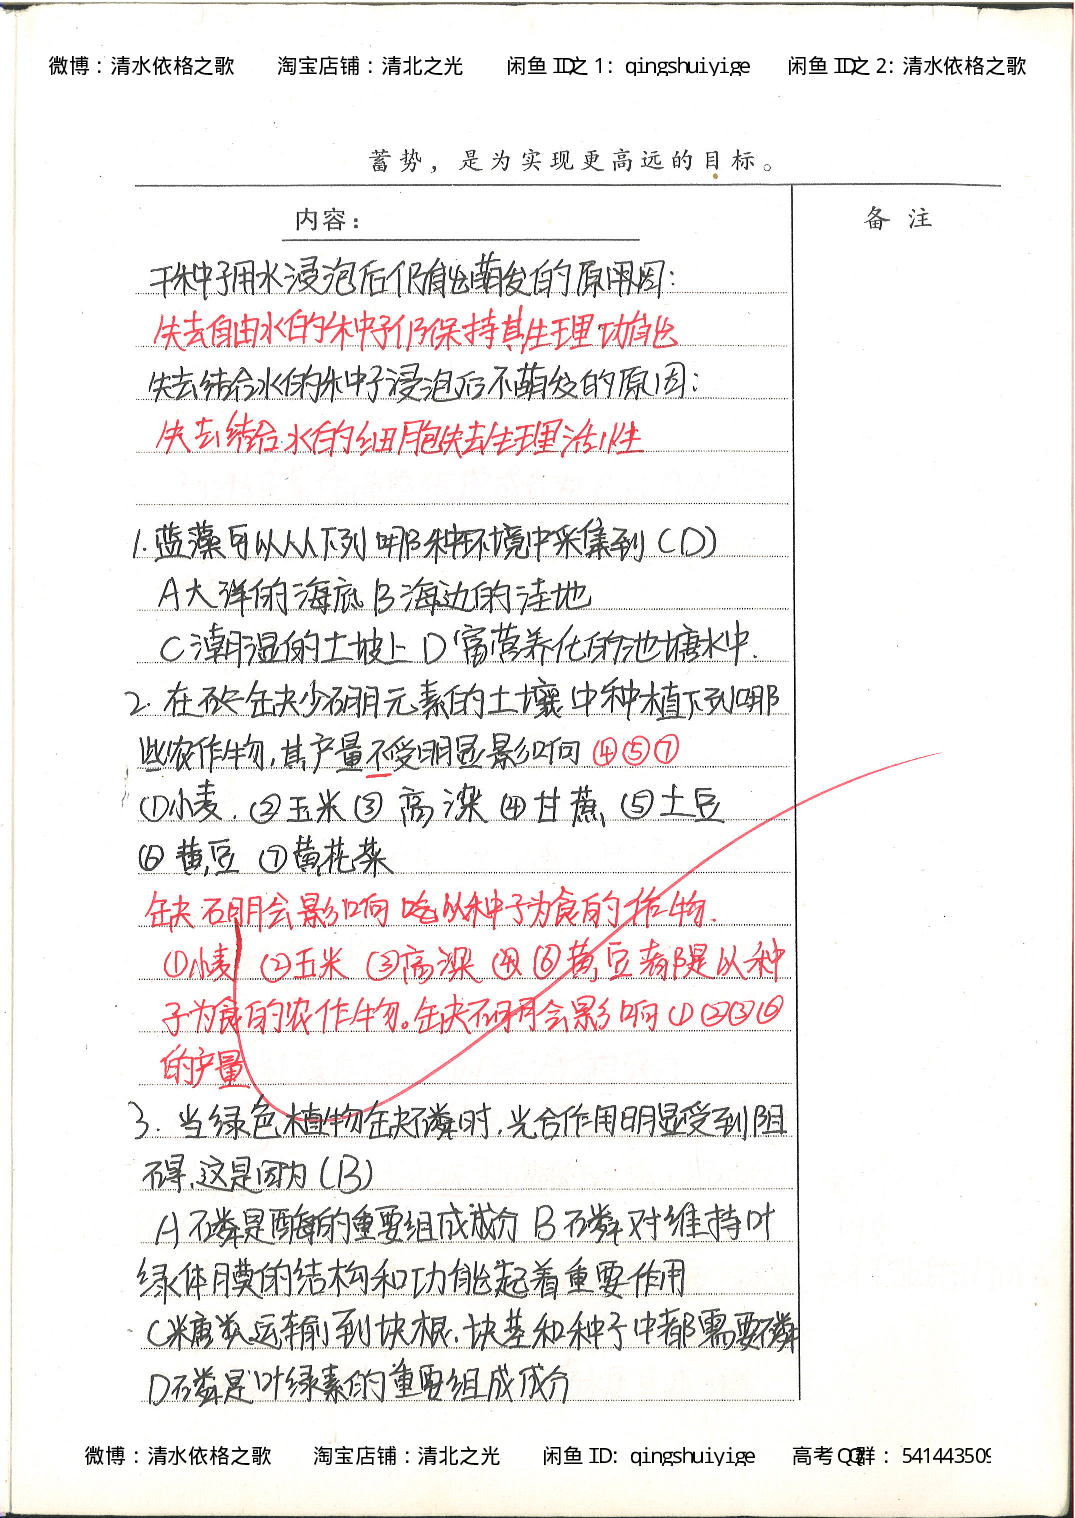 微博：清水依格之歌 淘宝店铺：清北之光 闲鱼 ID之 1: qingshuiyige 闲鱼 ID之 2: 清水依格之歌
蓄势，是为实现更高远的目标。
内容： 备注
干种子用水浸泡后仍能萌发的原因：
失去自由水的种子仍保持其生理功能
失去结合水的种子浸泡后不萌发的原因：
失去结合水的细胞失去生理活性
1. 蓝藻可以从下列哪种环境中采集到（D）
A 大洋的海底 B 海边的洼地
C 潮湿的土坡上 D 富营养化的池塘水中.
2. 在缺少硼元素的土壤中种植下列哪
些农作物,其产量不受明显影响 ④⑤⑦
①小麦. ②玉米 ③高粱 ④甘蔗 ⑤土豆
⑥黄豆 ⑦黄花菜
缺硼会影响 以种子为食的作物.
①小麦 ②玉米 ③高粱 ⑥黄豆都是以种
子为食的农作物。缺硼会影响①②③⑥
的产量
3. 当绿色植物缺磷时,光合作用明显受到阻
碍,这是因为（B）
A 磷是酶的重要组成成分 B 磷对维持叶
绿体膜的结构和功能起着重要作用
C糖类运输到块根.块茎和种子中都需要磷
D磷是叶绿素的重要组成成分
微博：清水依格之歌 淘宝店铺：清北之光 闲鱼 ID: qingshuiyige 高考 QQ群：541443509